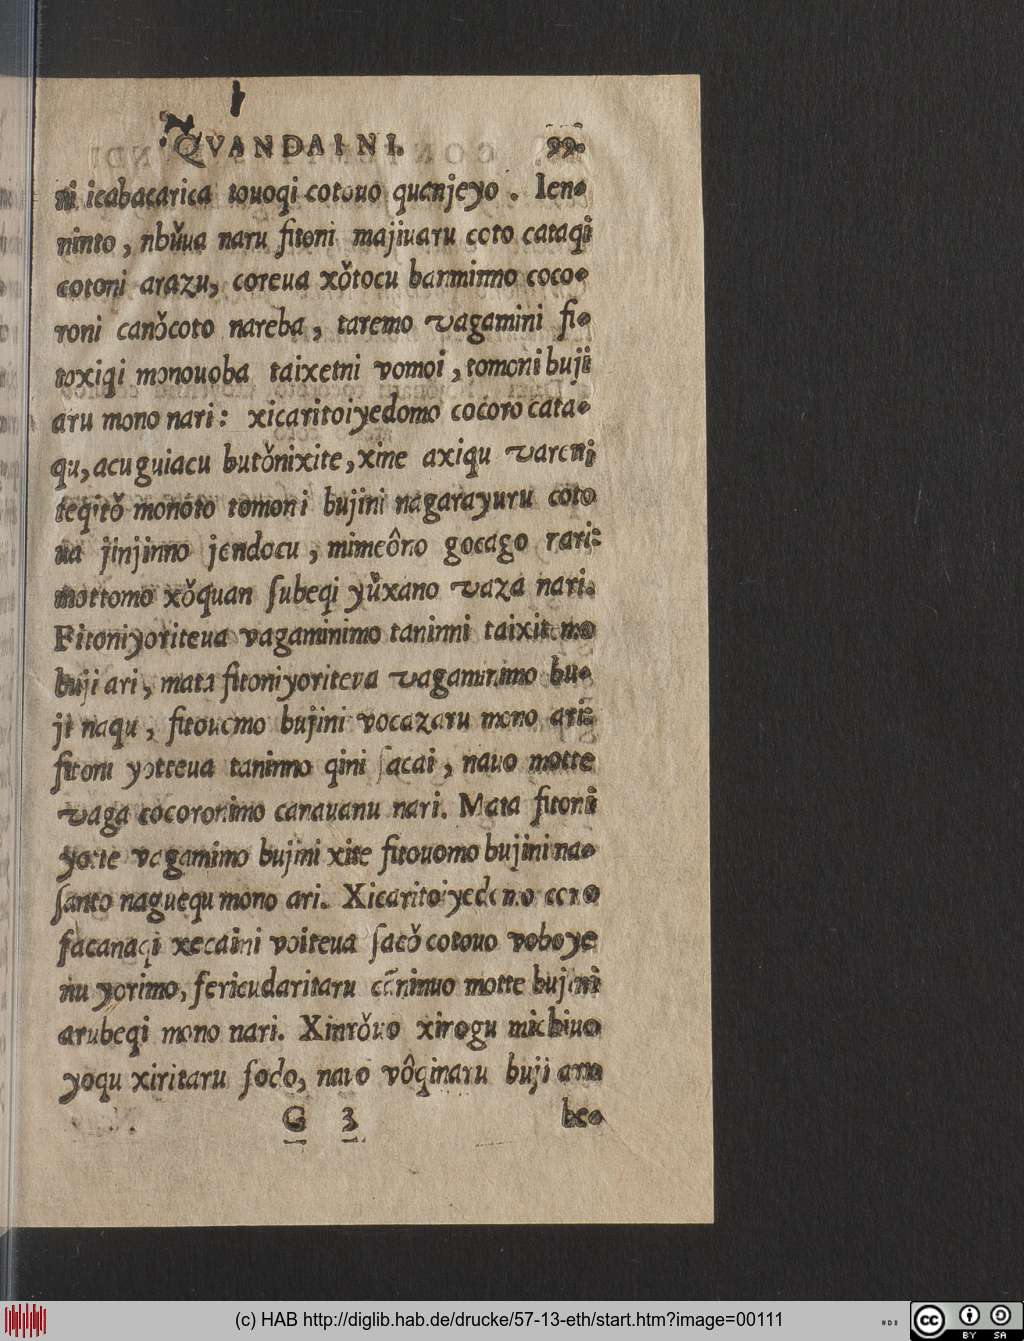 QVANDAI NI. 99.
ni icabacarica touoqi cotouo quanjeyo. Ien-
ninto, nbŭua naru fitoni majiuaru coto cataqi
cotoni arazu, coreua xǒtocu banminno coco-
roni canǒcoto nareba, taremo vagamini fi-
toxiqi monouoba taixetni vomoi, tomoni buji
aru mono nari: xicaritoiyedomo cocoro cata-
qu, acuguiacu butǒnixite, xine axiqu vareni
teqitǒ monoto tomoni bujini nagarayuru coto
ua jinjinno jendocu, mimeôno gocago rari:
mottomo xǒquan subeqi yŭxano vaza nari.
Fitoniyoriteua vagaminimo taninni taixitemo
buji ari, mata fitoniyoriteva vagaminimo bu-
ji naqu, fitouomo bujini vocazaru mono ari:
fitoni yotteua taninno qini sacai, nauo motte
vaga cocoronimo canauanu nari. Mata fitoni
yotte vagamimo bujini xite fitouomo bujini na-
santo naguequ mono ari. Xicaritoiyedomo cono
facanaqi xecaini voiteua sacǒ cotouo voboye
nu yorimo, fericudaritaru canninuo motte bujini
arubeqi mono nari. Xinrǒuo xirogu michiuo
yoqu xiritaru fodo, nauo vôqinaru buji aru
G 3 be-
(c) HAB http://diglib.hab.de/drucke/57-13-eth/start.htm?image=00111
cc BY SA